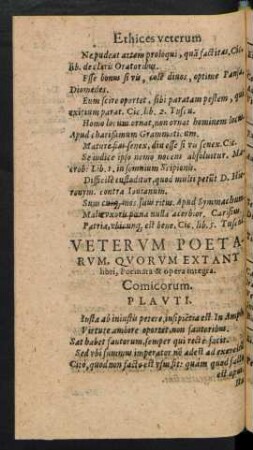 Ethices veterum
Ne pudeat artem proloqui, quã factitas, Cic.
lib. de claris Oratoribus.
Esse bonus si vis, cole diuos, optime Pansa.
Diomedes.
Eum scire oportet, sibi paratam pestem, qui
exitium parat. Cic. lib. 2. Tuscu.
Homo locum ornat, non ornat hominem locus.
Apud charisimum Grammaticum.
Mature fias senex, diu esse si vis senex. Cic.
Se iudice ipso nemo nocens absoluitur. Ma
crob: Lib. 1. in somnium Scipionis.
Difficile custoditur, quod multi petũt D. Hie
ronym. contra Iouianum.
Suus mos suis ritus. Apud Symmachum
Mala uxore pœna nulla acerbior, Carisius.
Patria, vbicunq, est bene. Cic, lib. 5. Tuscul.
VETERVM POETA-
RVM, QVORVM EXTANT
libri, Poemata & opera integra.
Comicorum.
PLAVTI.
Iusta ab iniustis petere, insipiẽtia est. In Amph.
Virtute ambire oportet, non fautoribus.
Sat habet fautorum, semper qui rectè facit.
Sed vbi summus imperator nõ adest ad exercitũ
Citò, quod non facto est vsus fit: quàm quod facto
est opus.